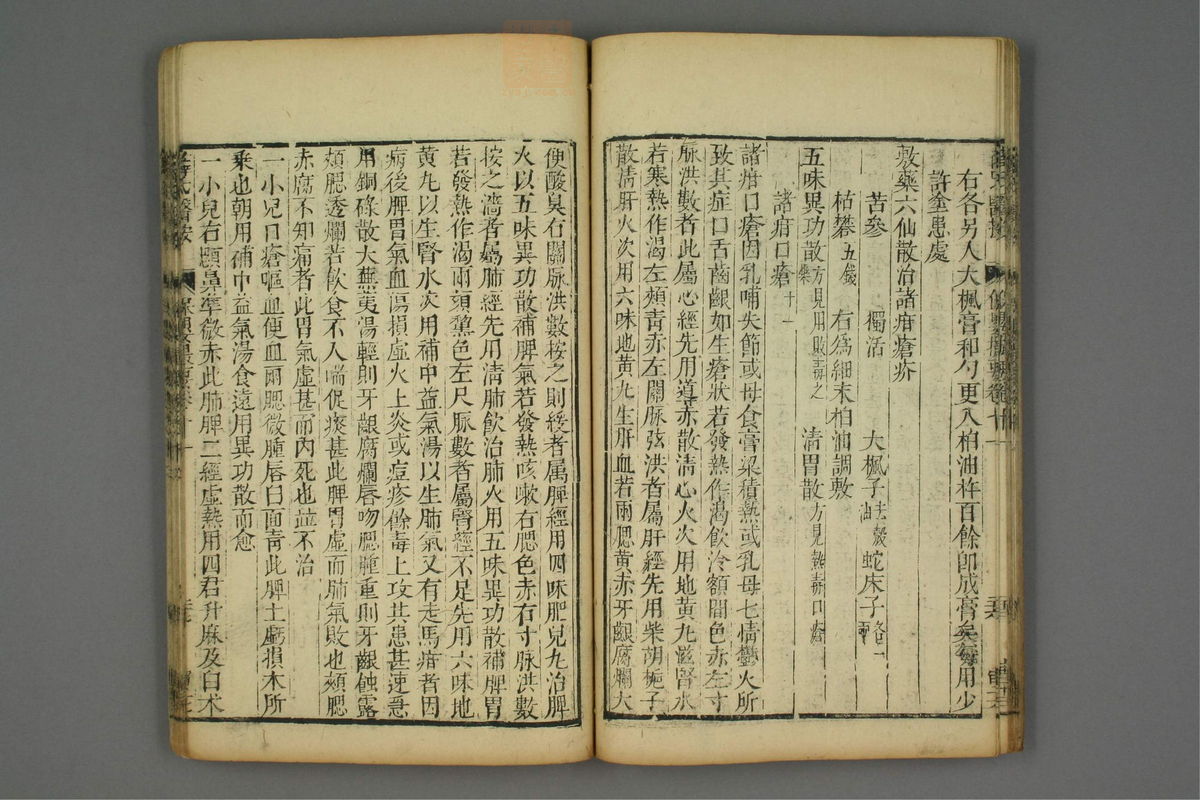 右各另入大楓膏和勻更入柏油杵百餘即成膏矣每用少
許塗患處
敷藥六仙散治諸疳瘡疥
苦參 獨活 大楓子去殼 蛇床子各一兩
枯礬五錢 右為細末柏油調敷
五味異功散方見 清胃散方見熱毒口瘡
諸疳口瘡十一
諸疳口瘡因乳哺失節或母食膏粱積熱或乳母七情鬱火所
致其症口舌齒齦如生瘡狀若發熱作渴飲冷額間色赤左寸
脉洪數者此屬心經先用導赤散清心火次用地黃丸滋腎水
若寒熱作渴左頰青赤左關脉弦洪者屬肝經先用柴胡梔子
散清肝火次用六味地黃丸生肝血若兩腮黃赤牙齦腐爛大
便酸臭右關脉洪數按之則緩者屬脾經用四味肥兒丸治脾
火以五味異功散補脾氣若發熱咳嗽右腮色赤右寸脉洪數
按之濇者屬肺經先用清肺飲治肺火用五味異功散補脾胃
若發熱作渴兩頦黧色左尺脉數者屬腎經不足先用六味地
黃丸以生腎水次用補中益氣湯以生肺氣又有走馬疳者因
病後脾胃氣血傷損虛火上炎或痘疹餘毒上攻其患甚速急
用銅碌散大蕪荑湯輕則牙齦腐爛唇吻腮腫重則牙齦蝕露
頰腮透爛若飲食不入喘促痰甚此脾胃虛而肺氣敗也頰腮
赤腐不知痛者此胃氣虛甚而內死也並不治
一小兒口瘡嘔血便血兩腮微腫唇白面青此脾土虧損木所
乘也朝用補中益氣湯食遠用異功散而愈
一小兒右頰鼻準微赤此肺脾二經虛熱用四君升麻及白朮
薛氏醫按 保嬰撮要卷十一